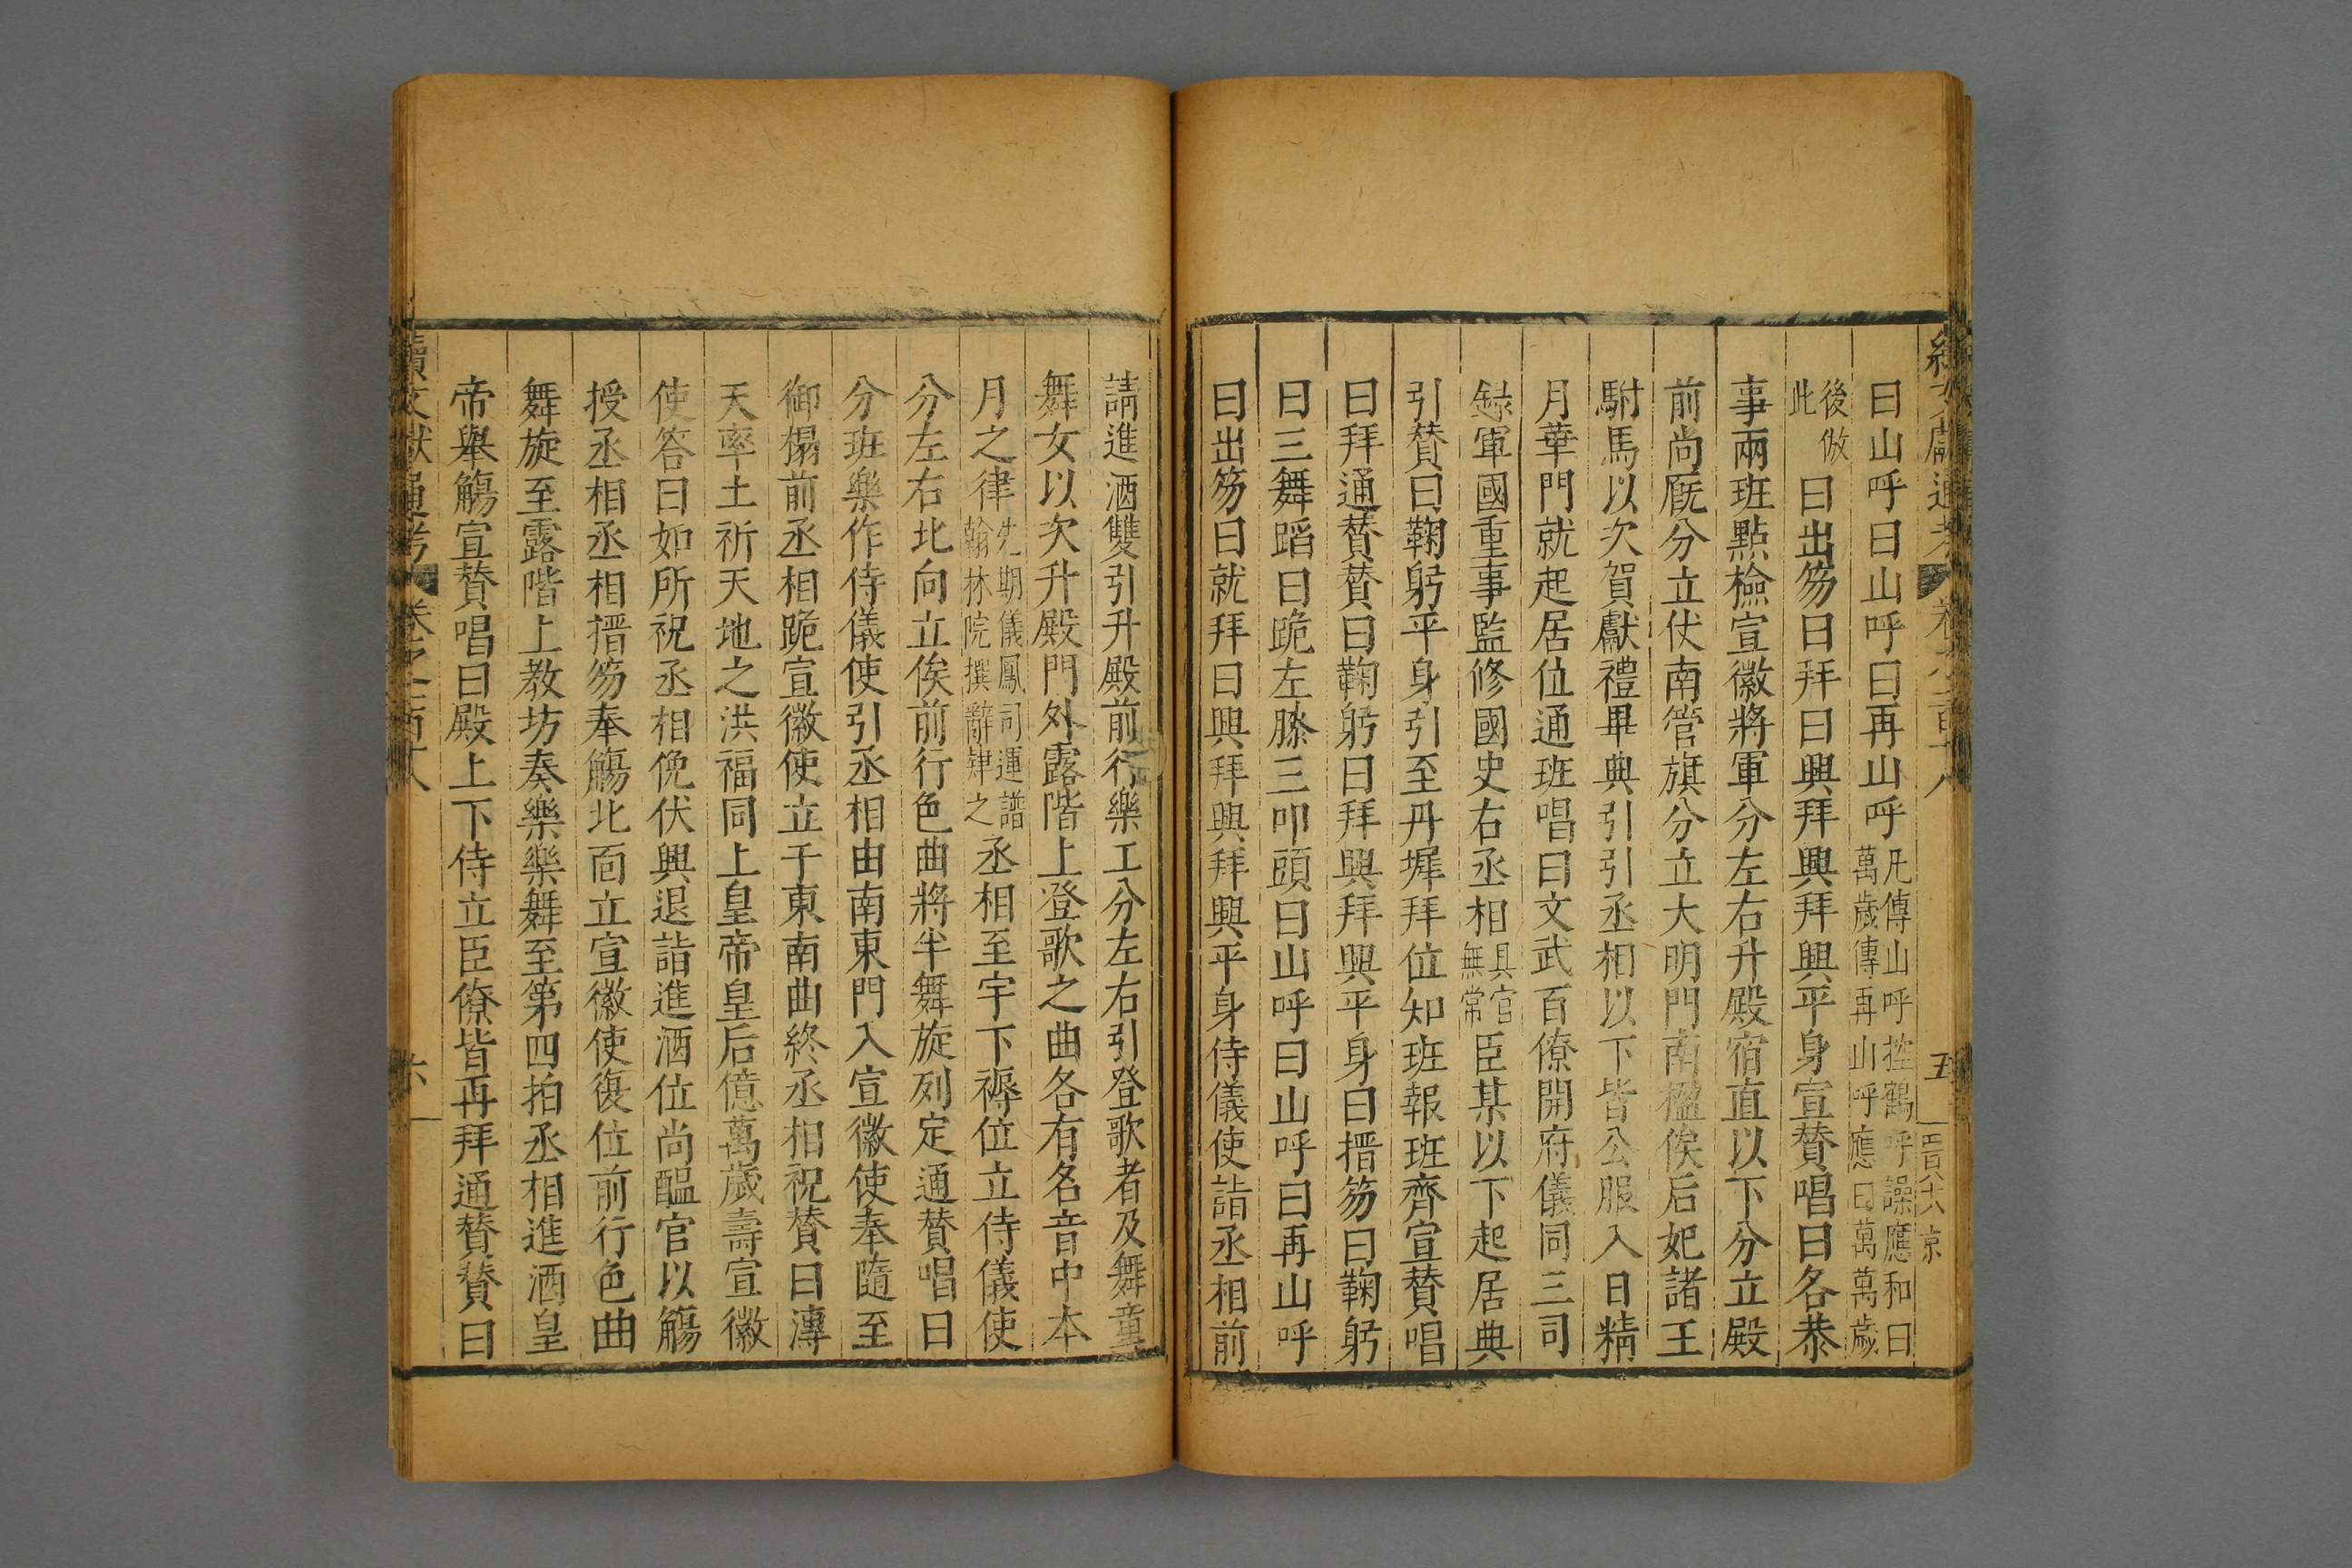 曰山呼曰山呼曰再山呼凡傳山呼控鶴呼譟應和曰萬歲傳再山呼應曰萬萬歲
後倣此曰出笏曰拜曰興拜興拜興平身宣賛唱曰各恭
事兩班點檢宣徽將軍分左右升殿宿直以下分立殿
前尚厩分立仗南管旗分立大明門南楹俟后妃諸王
駙馬以次賀獻禮畢典引引丞相以下皆公服入日精
月華門就起居位通班唱曰文武百僚開府儀同三司
錄軍國重事監修國史右丞相具官無常臣某以下起居典
引賛曰鞠躬平身引至丹墀拜位知班報班齊宣賛唱
曰拜通賛賛曰鞠躬曰拜興拜興平身曰搢笏曰鞠躬
曰三舞蹈曰跪左膝三叩頭曰山呼曰山呼曰再山呼
曰出笏曰就拜曰興拜興拜興平身侍儀使詣丞相前
請進酒雙引升殿前行樂工分左右引登歌者及舞童
舞女以次升殿門外露階上登歌之曲各有名音中本
月之律先期儀鳳司運譜翰林院撰辭肄之丞相至宇下褥位立侍儀使
分左右北向立俟前行色曲將半舞旋列定通賛唱曰
分班樂作侍儀使引丞相由南東門入宣徽使奉隨至
御榻前丞相跪宣徽使立于東南曲終丞相祝賛曰溥
天率土祈天地之洪福同上皇帝皇后億萬歲壽宣徽
使答曰如所祝丞相俛伏興退詣進酒位尚醖官以觴
授丞相丞相搢笏奉觴北靣立宣徽使復位前行色曲
舞旋至露階上教坊奏樂樂舞至第四拍丞相進酒皇
帝舉觴宣賛唱曰殿上下侍立臣僚皆再拜通賛賛曰
續文獻通考
六